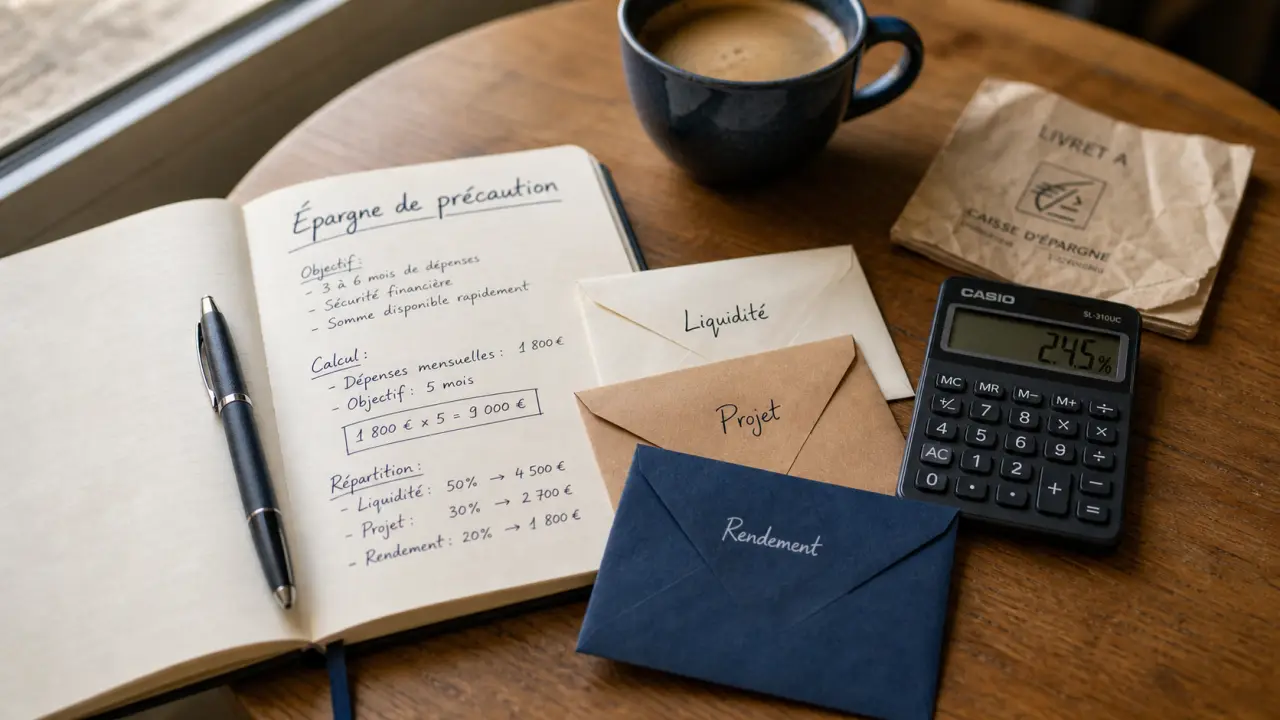 Épargne de précaution
Objectif :
- 3 à 6 mois de dépenses
- Sécurité financière
- Somme disponible rapidement
Calcul :
- Dépenses mensuelles : 1 800 €
- Objectif : 5 mois
1 800 € × 5 = 9 000 €
Répartition :
- Liquidité : 50% → 4 500 €
- Projet : 30% → 2 700 €
- Rendement : 20% → 1 800 €
Liquidité
Projet
Rendement
LIVRET A
CAISSE D'ÉPARGNE
CASIO
SL-310UC
2.4.5%
MC MR M- M+ ÷
+/- 7 8 × ×
4 5 6 9 ÷
AC 1 2 + −
0 . . =